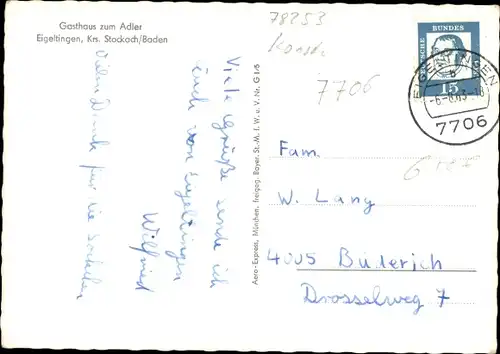 Gasthaus zum Adler
Eigeltingen, Krs. Stockach/Baden
Viele Grüße sende ich
Euch von Eigeltingen
Wilfried
Vielen Dank für die
Aero-Express, München, Freigeg. Bayer. St. M. f. W. u. V. Nr. G 1/5
78253
7706
DEUTSCHE BUNDESPOST
15
EIGELTINGEN
b
7706
Fam.
W. Lang
4005 Büderich
Drosselweg 7